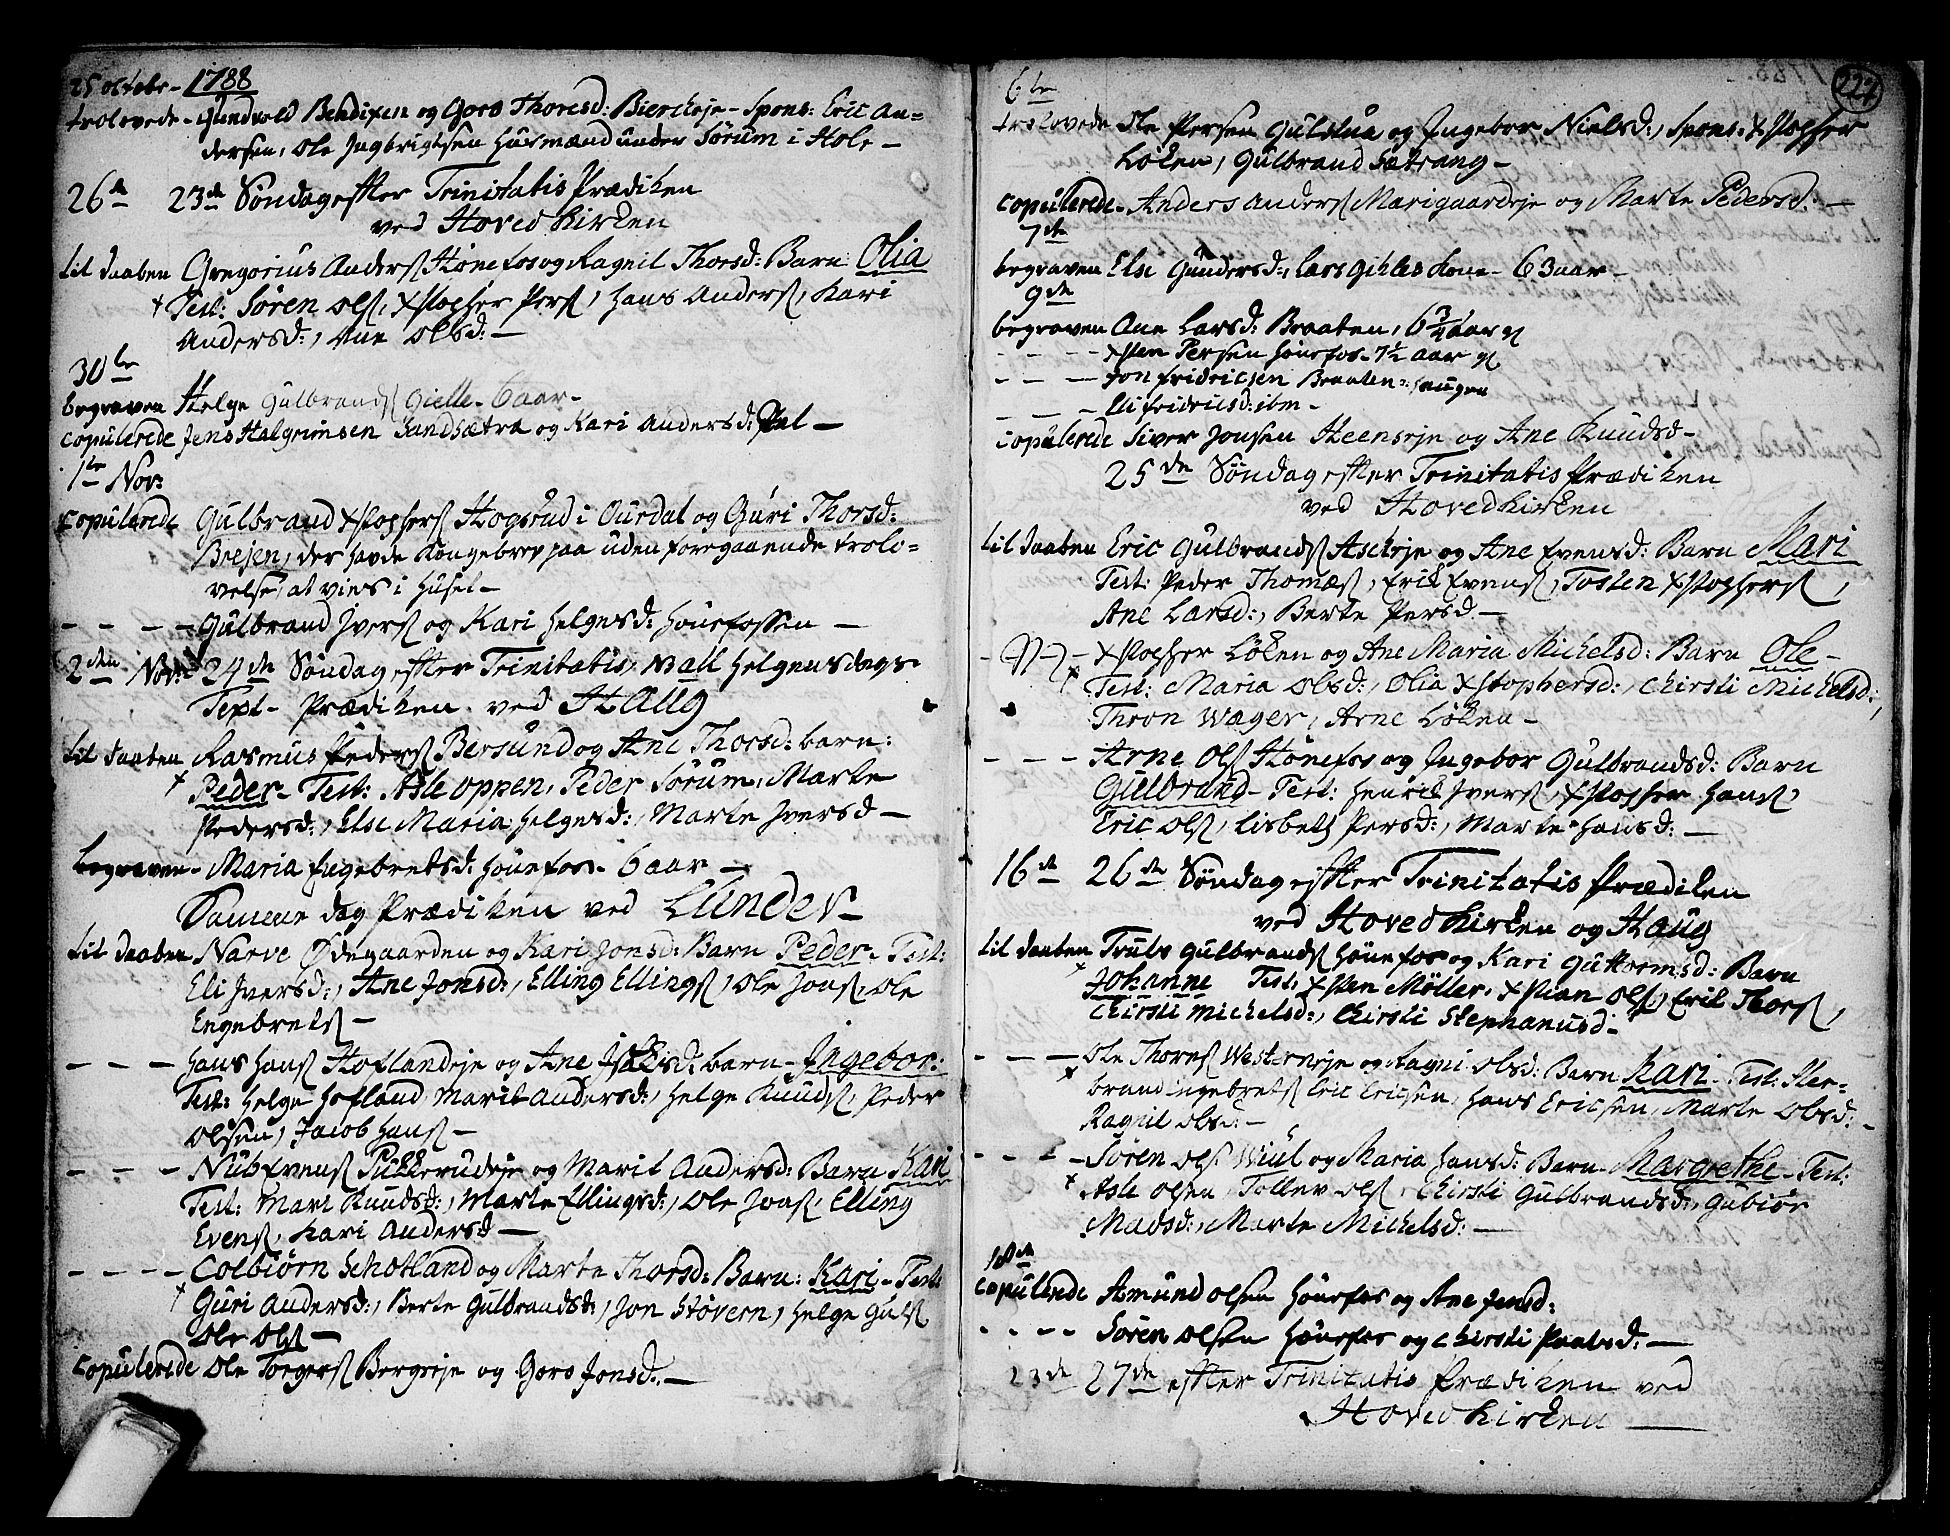 25 octobr - 1788
trolovede - Gundvold Bendixen og Goro Thoresd: Bierckeje - Spons: Eric An=
dersen, Ole Ingbrigtsen Huusmænd under Sørum i Hole -
26de 23de Søndag efter Trinitatis Prædiken
ved Hoved Kirken
til daaben Gregorius Anders Hønefos og Ragnil Thorsd: Barn: Olia
+ Test: Søren Ols, Xstopher Pers, Hans Anders, Kari
Andersd:, Ane Olsd: -
30te
begraven Helge Gulbrands Gielle - 6 aar -
copulerede Jens Halgrimsen Sandsætra og Kari Andersd: Pal -
1te Nov:
copulerede Gulbrand Xstophers Hogsrud i Ourdal og Guri Thorsd:
Brejen, der havde Kongebrev paa uden foregaaende trolo=
velse, at vies i Huset -
- - - - Gulbrand Ivers og Kari Helgesd: Hønefossen -
2den Nov: 24de Søndag efter Trinitatis, alle Helgens dags
Text - Prædiken ved Haug
til daaben Rasmus Peders Bersund og Ane Thorsd: barn:
+ Peder - Test: Asle Oppen, Peder Sørum, Marte
Pedersd:, Else Maria Helgesd:, Marte Iversd -
begraven - Maria Engebretsd: Hønefos - 6 aar -
Samme dag Prædiken ved Lunder -
til daaben Narve Ødegaarden og Kari Jonsd: Barn Peder - Test:
Eli Iversd:, Ane Jonsd:, Elling Ellings, Ole Jons, Ole
Engebrets -
- - - Hans Hans Hoflandeje og Ane Isaksd: barn - Ingebor:
Test: Helge Hofland Marit Andersd:, Helge Knuds, Peder
Olsen, Jacob Hans -
- - - Nub Evens Pukkerudeje og Marit Andersd: Barn Kari
Test: Mari Knudsd:, Marte Ellingsd:, Ole Jons, Elling
Evens, Kari Andersd -
- - - - Colbiørn Schotland og Marte Thorsd: Barn: Kari - Test:
+ Guri Andersd:, Berte Gulbrandsd:, Jon Støvern, Helge Guls
Ole Ols -
copulerede Ole Torgers Bergeje og Goro Jonsd: -
227
6te
trolovede Ole Persen Gulstua og Ingebor Nielsd:, Spons: Xstopher
Løken, Gulbrand Sætrang -
copulerede - Anders Anders Marigaardeje og Marte Pedersd: -
7de
begraven Else Gundersd:, Lars Gihles Kone - 63 aar -
9de
begraven Ane Larsd: Braaten, 6 3/4 aar
- - - Xsten Persen Hønefos - 7 1/2 aar
- - - Jon Fridricsen Braaten: haugen
- - - Eli Fridricsd: ibm -
copulerede Siver Jonsen Steenseje og Ane Knudsd -
25de Søndag efter Trinitatis Prædiken
ved Hovedkirken
til daaben Eric Gulbrands Askeje og Ane Evensd: Barn Kari
Test: Peder Thomæs, Erik Evens, Tosten Xstophers,
Ane Larsd:, Berte Persd -
- - Xstopher Løken og Ane Maria Michelsd: Barn Ole -
+ Test: Maria Olsd:, Olia Xstophersd:, Chirsti Michelsd:,
Thron Wager, Arne Løken -
- - - Arne Ols Hønefos og Ingebor Gulbrandsd: Barn
Gulbrand - Test: Henrik Ivers, Xstopher Hans,
Eric Ols, Lisbeth Persd:, Marte Hansd: -
16de 26de Søndag efter Trinitatis Prædiken
ved Hovedkirken og Haug
til daaben Truls Gulbrands Hønefos og Kari Guttormsd: Barn
+ Johanne Test: Xsten Møller, Xstian Ols, Erik Thors,
Chirsti Michelsd:, Chirsti Stephanusd -
- - - Ole Thores Westerneje og Ragni Olsd: Barn Kari - Test: Ster=
+ brand Ingebrets Eric Ericsen, Hans Ericsen, Marte Olsd: -
Ragnil Olsd: -
- - - Søren Ols Wiul og Maria Hansd: Barn - Margrethe - Test:
+ Asle Olsen, Tollev Ols, Chirsti Gulbrandsd:, Gubiør
Madsd:, Marte Michelsd: -
18de
copulerede Amund Olsen Hønefos og Ane Jensd:
- - - - Søren Olsen Hønefos og Chirsti Paalsd: -
23de 27de efter Trinitatis Prædiken ved
Hovedkirken -